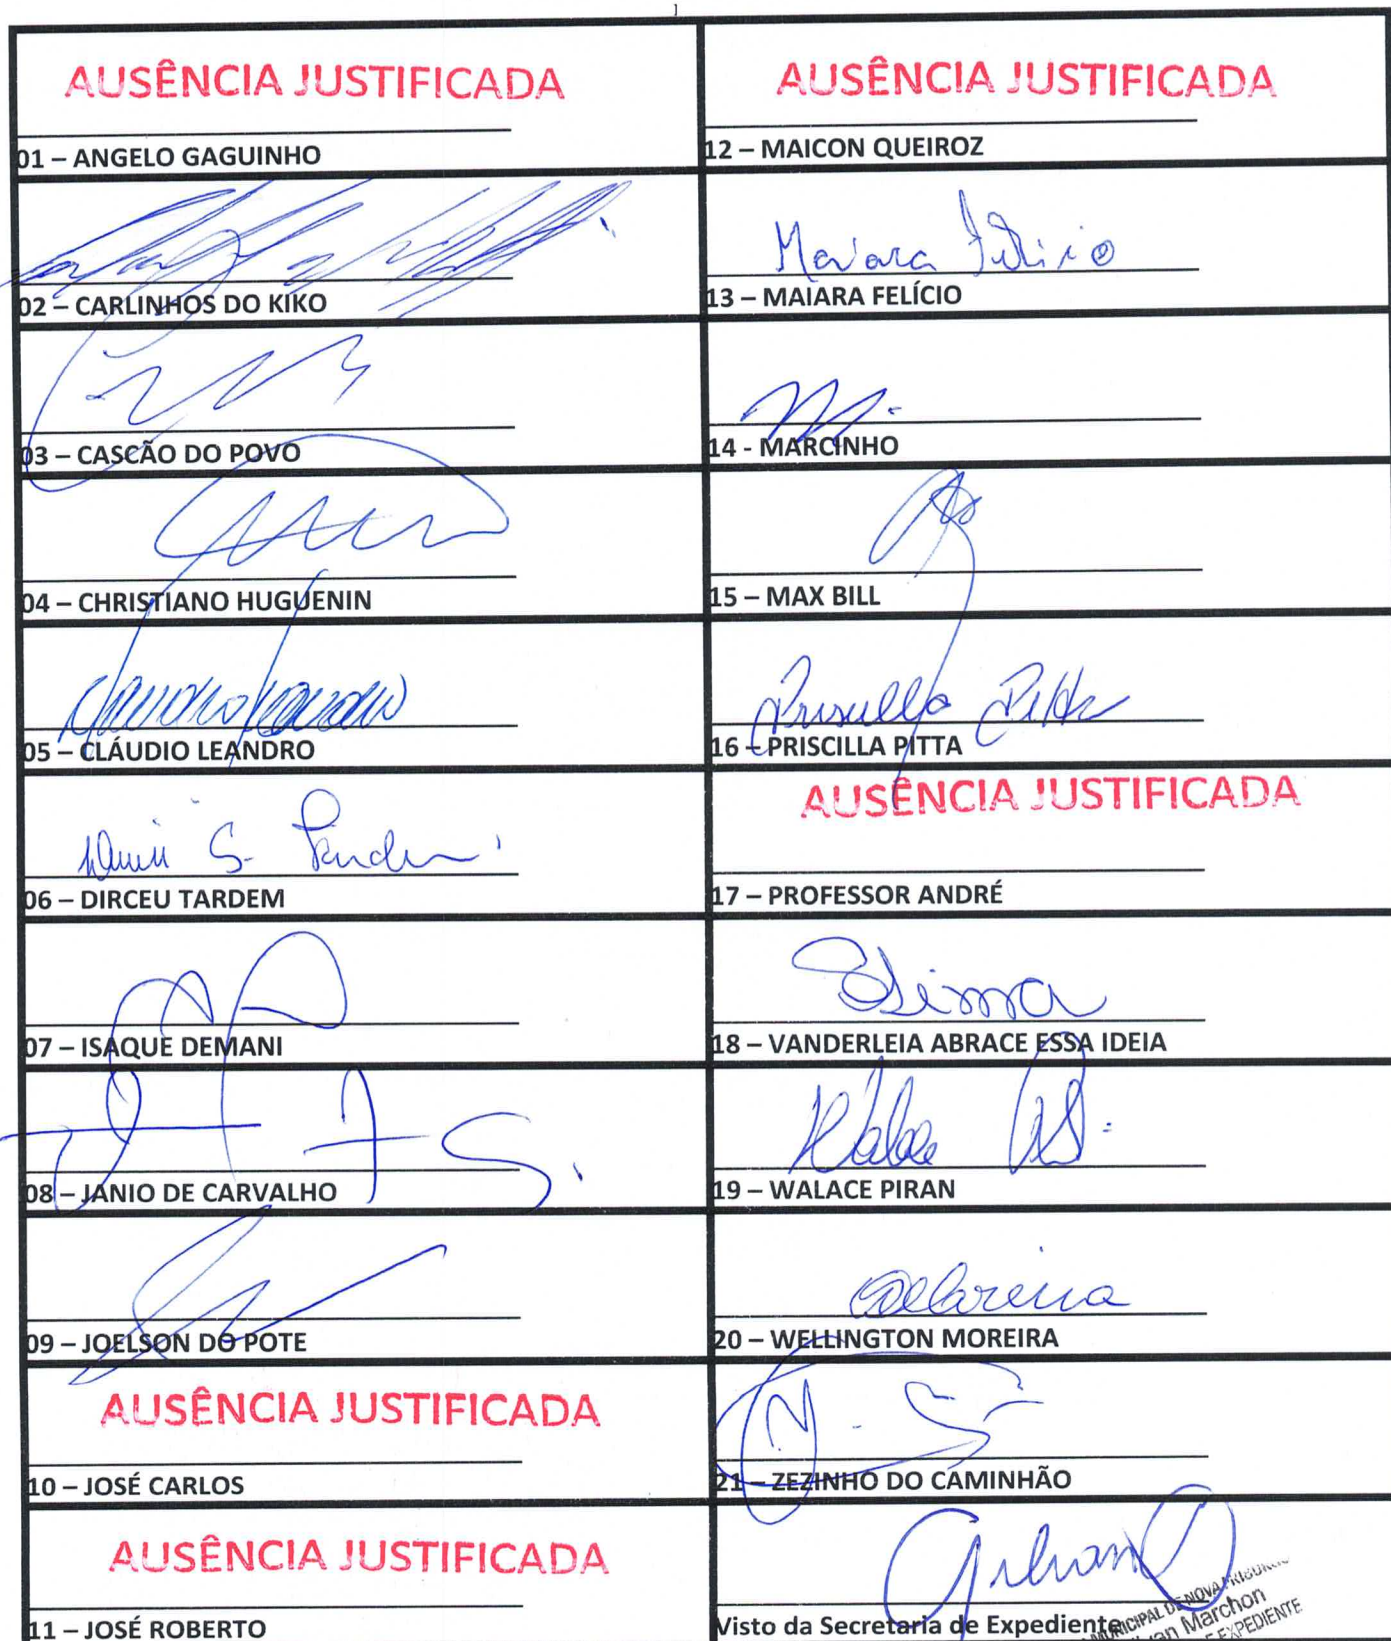 AUSÊNCIA JUSTIFICADA
01 – ANGELO GAGUINHO
02 – CARLINHOS DO KIKO
03 – CASCÃO DO POVO
04 – CHRISTIANO HUGUENIN
05 – CLÁUDIO LEANDRO
06 – DIRCEU TARDEM
07 – ISAQUE DEMANI
08 – JANIO DE CARVALHO
09 – JOELSON DO POTE
AUSÊNCIA JUSTIFICADA
10 – JOSÉ CARLOS
AUSÊNCIA JUSTIFICADA
11 – JOSÉ ROBERTO
AUSÊNCIA JUSTIFICADA
12 – MAICON QUEIROZ
Maiara Felício
13 – MAIARA FELÍCIO
14 - MARCINHO
15 – MAX BILL
Priscilla Pitta
16 – PRISCILLA PITTA
AUSÊNCIA JUSTIFICADA
17 – PROFESSOR ANDRÉ
18 – VANDERLEIA ABRACE ESSA IDEIA
19 – WALACE PIRAN
20 – WELLINGTON MOREIRA
21 – ZEZINHO DO CAMINHÃO
Visto da Secretaria de Expediente
MUNICIPAL DE NOVA
Marchon
EXPEDIENTE